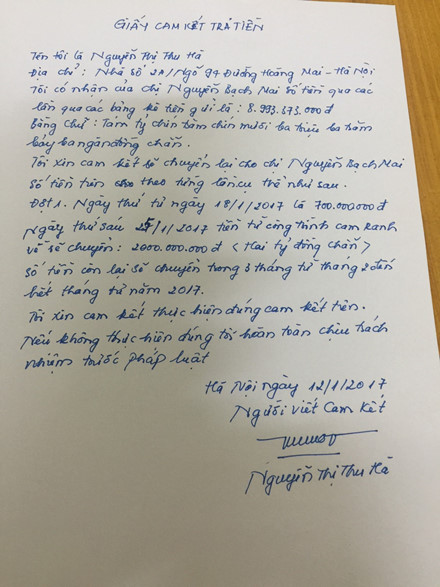 GIẤY CAM KẾT TRẢ TIỀN
Tên tôi là Nguyễn Thị Thu Hà
Địa chỉ: Nhà số 2A/Ngõ 94 Đường Hoàng Mai - Hà Nội
Tôi có nhận của chị Nguyễn Bạch Mai số tiền qua các
lần qua các bảng kê tiền gửi là: 8.993.373.000đ
Bằng chữ: Tám tỷ chín trăm chín mươi ba triệu ba trăm
bảy ba ngàn đồng chẵn.
Tôi xin cam kết sẽ chuyển lại cho chị Nguyễn Bạch Mai
số tiền trên theo từng lần cụ thể như sau.
Đợt 1. Ngày thứ tư ngày 18/1/2017 là 700.000.000đ
Ngày thứ sáu /1/2017 tiền từ công trình cam Ranh
về sẽ chuyển: 2000.000.000đ <Hai tỷ đồng chẵn>
Số tiền còn lại sẽ chuyển trong 3 tháng từ tháng 2 đến
hết tháng tư năm 2017.
Tôi xin cam kết thực hiện đúng cam kết trên.
Nếu không thực hiện đúng tôi hoàn toàn chịu trách
nhiệm trước pháp luật
Hà Nội ngày 12/1/2017
Người viết Cam Kết
Nguyễn Thị Thu Hà